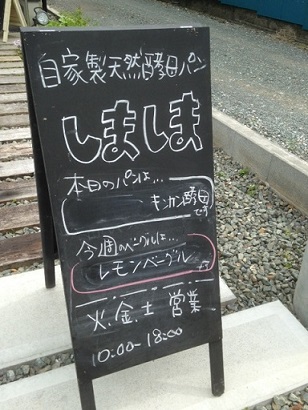 自家製天然酵母パン
しましま
本日のパンは…
キンカン酵母
です
今週のベーグルは…
レモンベーグル
です
火.金.土 営業
10:00-18:00